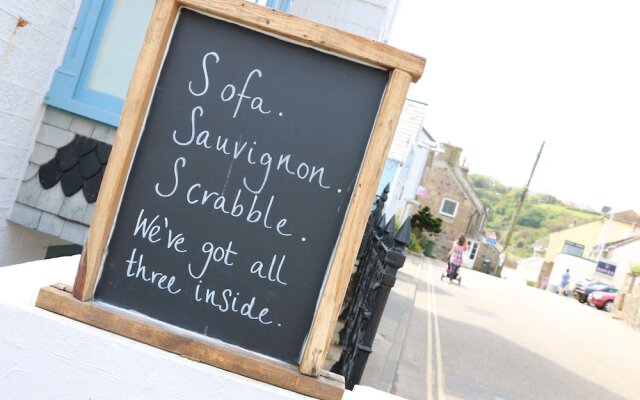 Sofa.
Sauvignon.
Scrabble.
We've got all
three inside.